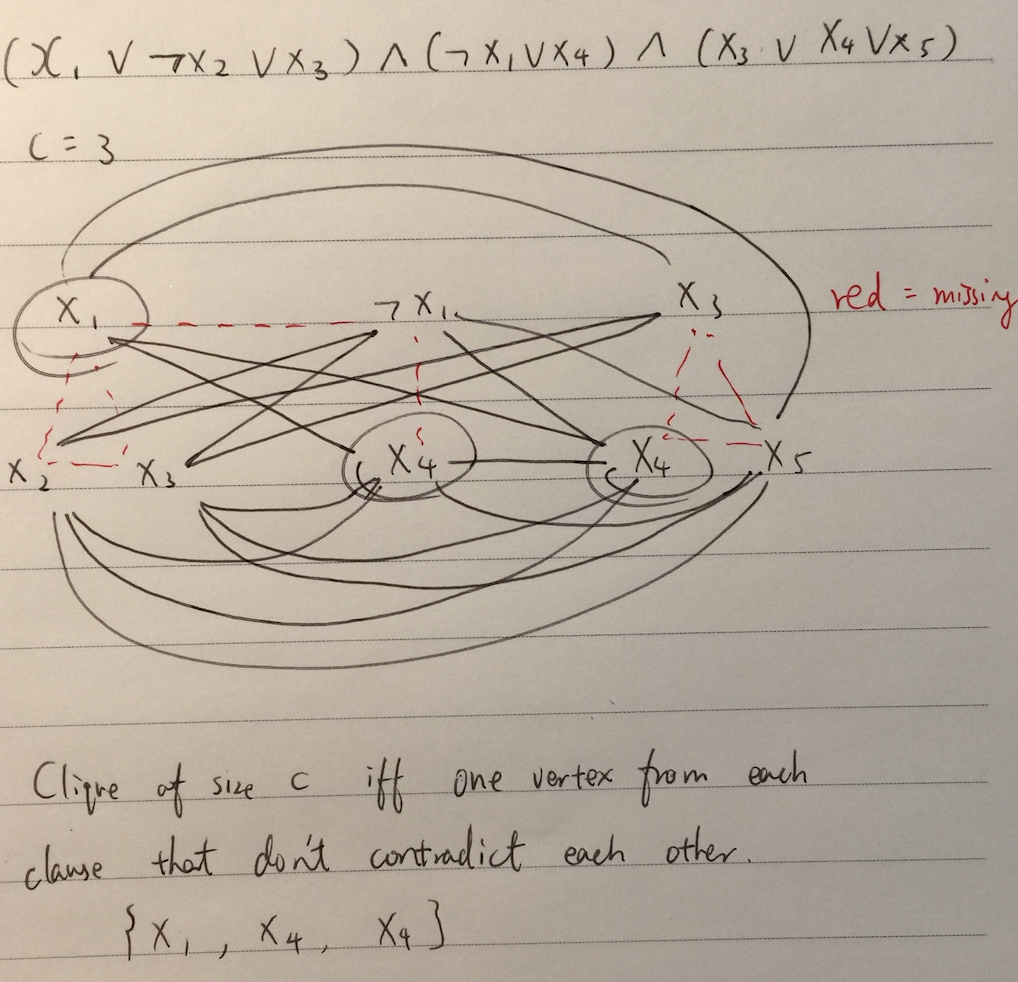 (x₁ ∨ ¬x₂ ∨ x₃) ∧ (¬x₁ ∨ x₄) ∧ (x₃ ∨ x₄ ∨ x₅)
C = 3
x₁ ¬x₁ x₃ red = missing
x₂ x₃ x₄ x₄ x₅
Clique of size c iff one vertex from each
clause that don't contradict each other.
{x₁, x₄, x₄}